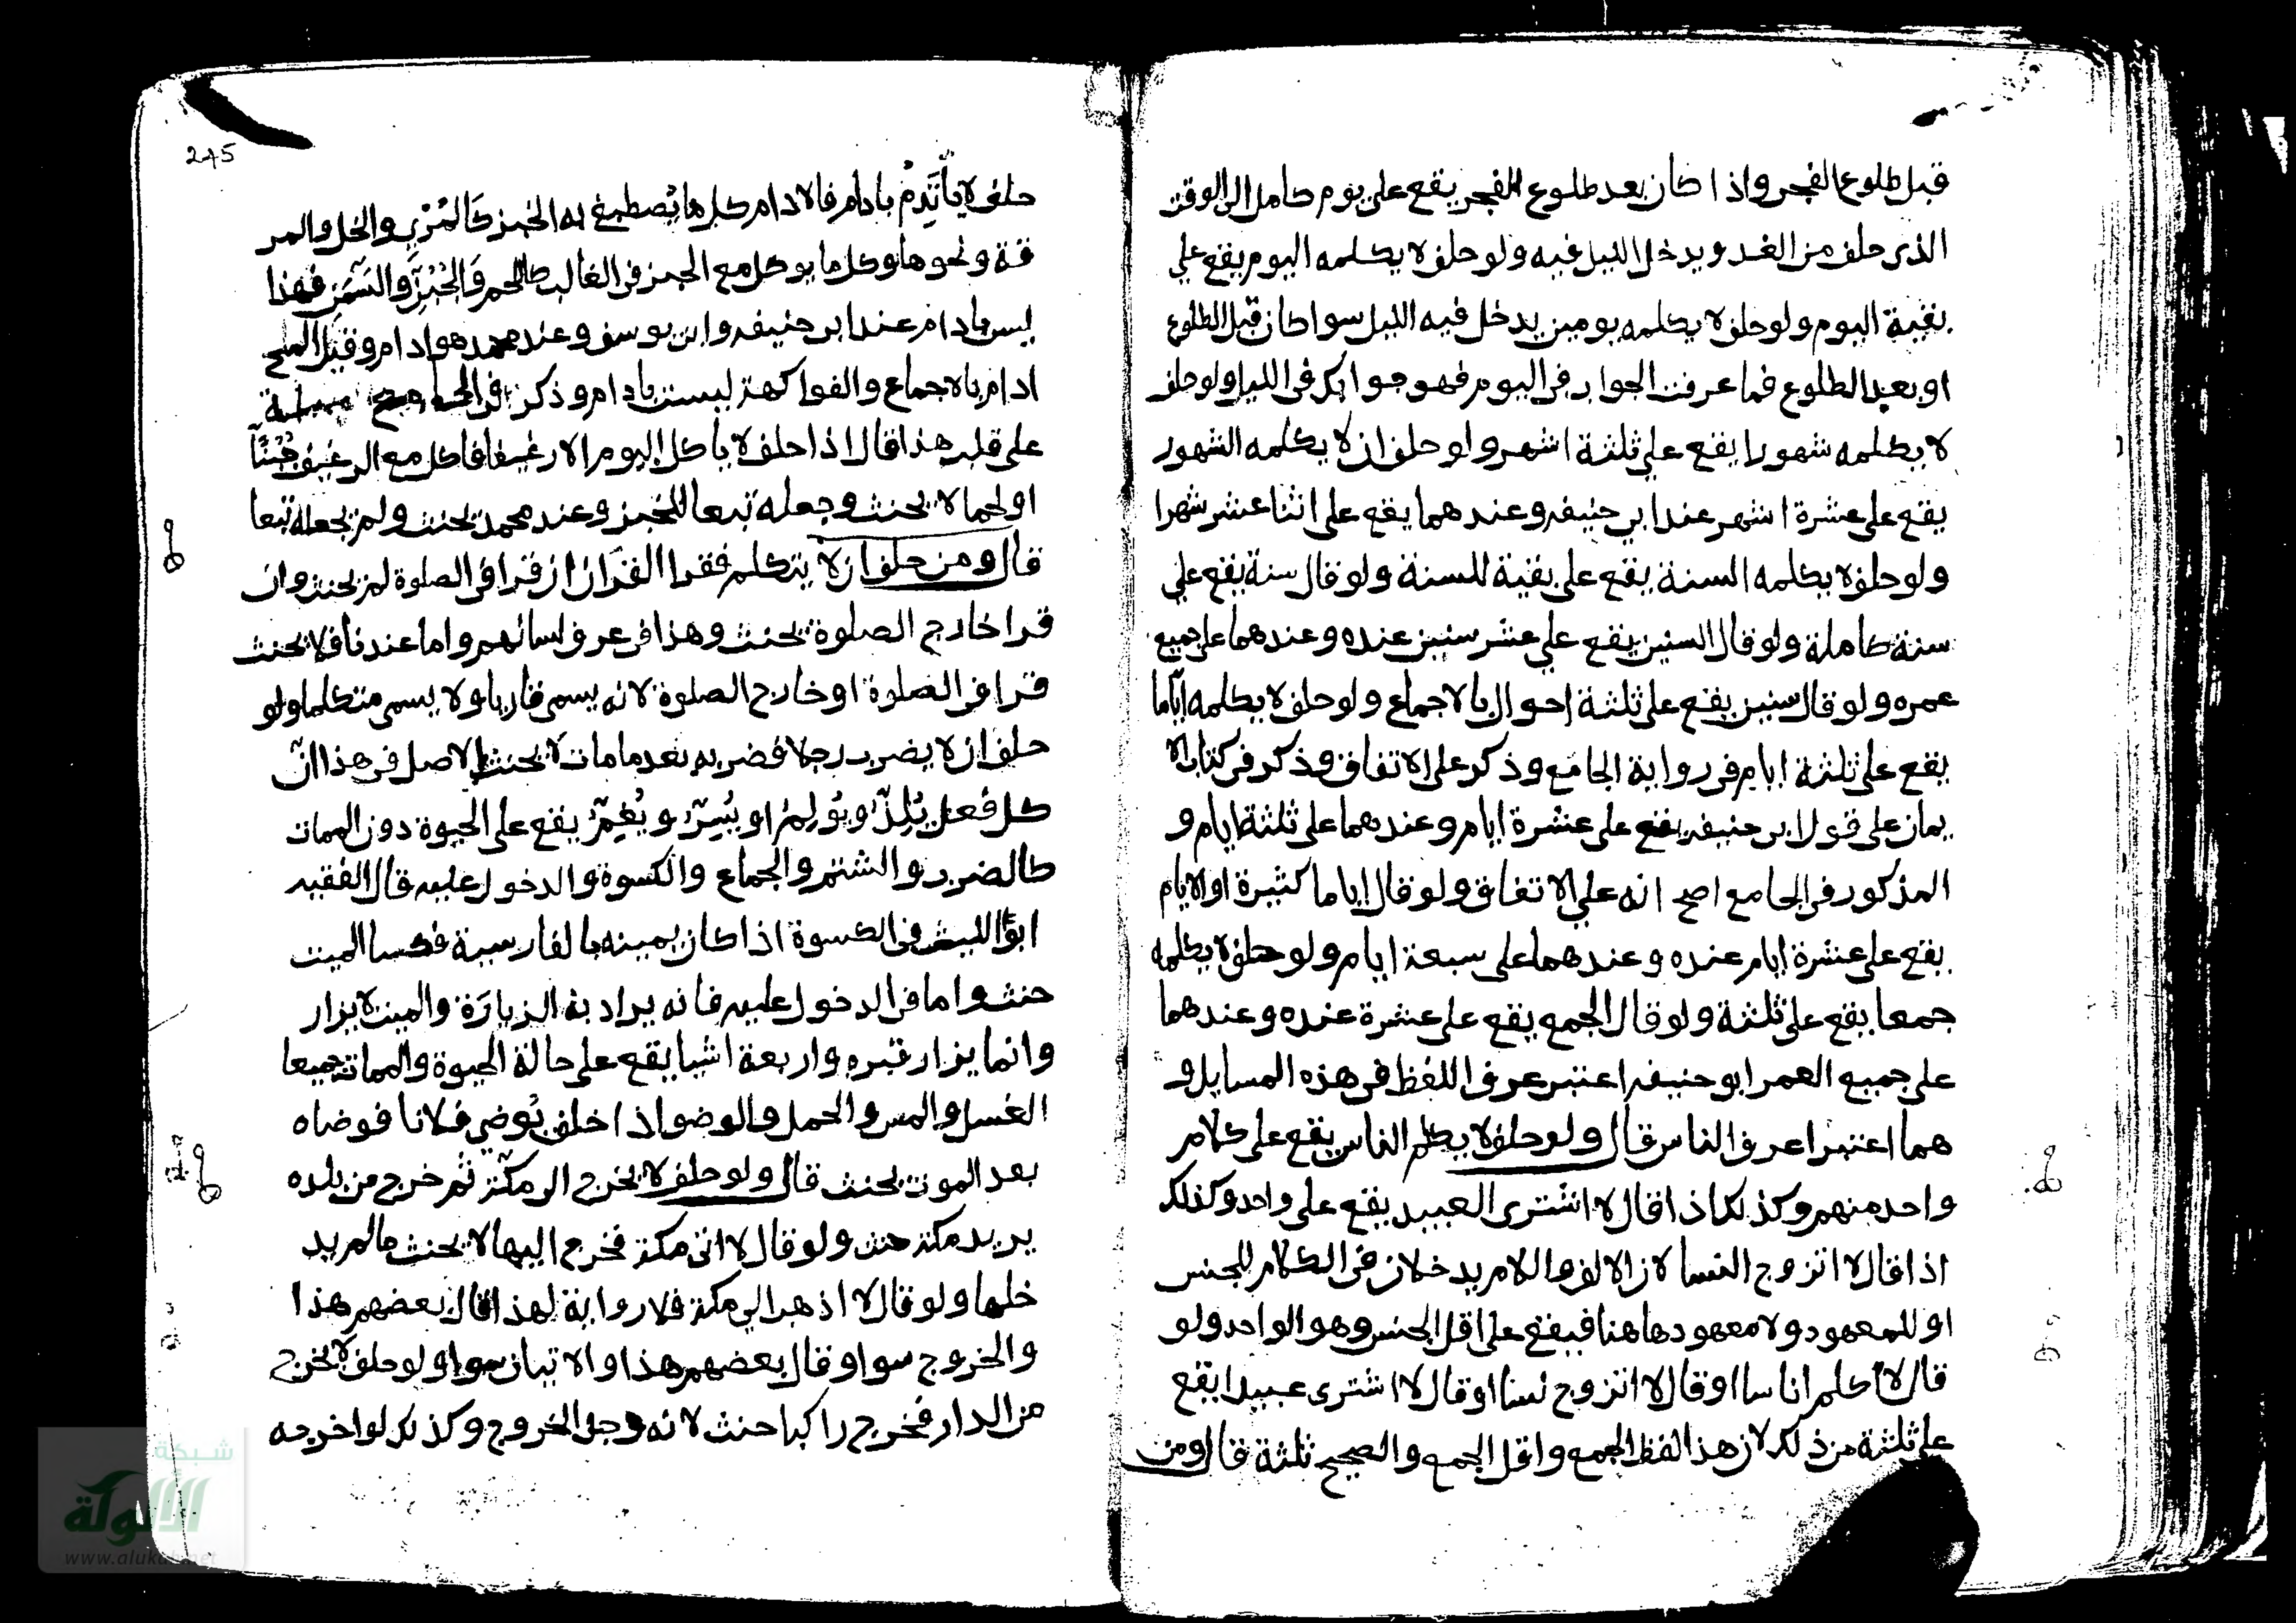 قبل طلوع الفجر واذا كان بعد طلوع الفجر يقع على يوم كامل الى الوقت
الذى حلف من الغد ويدخل الليل فيه ولو حلف لا يكلمه اليوم يقع على
بقية اليوم ولو حلف لا يكلمه يومين يدخل فيه الليل سوا كان قبل الطلوع
او بعد الطلوع فما عرفت الجواب فى اليوم فهو جوابك فى الليل ولو حلف
لا يكلمه شهورا يقع على ثلثة اشهر ولو حلف ان لا يكلمه الشهور
يقع على عشرة اشهر عند ابى حنيفه وعندهما يقع على اثنا عشر شهرا
ولو حلف لا يكلمه السنة يقع على بقية للسنة ولو قال سنة يقع على
سنة كاملة ولو قال السنين يقع على عشر سنين عنده وعندهما على جميع
عمره ولو قال سنين يقع على ثلثة احوال بالاجماع ولو حلف لا يكلمه ايّاما
يقع على ثلثة ايام فى رواية الجامع وذكر على الاتفاق وذكر فى كتاب الا
يمان على قول ابى حنيفه يقع على عشرة ايام وعندهما على ثلثة ايام و
المذكور فى الجامع اصح انه على الاتفاق ولو قال اياما كثيرة او الايام
يقع على عشرة ايام عنده وعندهما على سبعة ايام ولو حلف لا يكلمه
جمعا يقع على ثلثة ولو قال الجمع يقع على عشرة عنده وعندهما
على جميع العمر ابو حنيفه اعتبر عرف اللفظ فى هذه المسايل و
هما اعتبرا عرف الناس قال ولو حلف لا يكلم الناس يقع على كلام
واحد منهم وكذلك اذا قال لا اشترى العبيد يقع على واحد وكذلك
اذا قال لا اتزوج النسا لان الالف واللام يدخلان فى الكلام للجنس
او للمعهود ولا معهود هاهنا فيقع على اقل الجنس وهو الواحد ولو
قال لا اكلم اناسا او قال لا اتزوج نسا او قال لا اشترى عبيدا يقع
على ثلثة من ذلك لان هذا لفظ الجمع واقل الجمع والصحيح ثلثة قال ومن
245
حلف لا يأتَدِمُ بادام فالادام كل ما يُصطبغ به الخبز والخل والمر
قة ونحوها وكل ما يوكل مع الخبز فى الغالب كاللحم وَالجُبْنِ فهذا
ليس بادام عند ابى حنيفه وابى يوسف وعند محمد هو ادام وقيل الملح
ادام بالاجماع والفواكهة ليست بادام وذكر فى
على قلب هذا قال اذا حلف لا ياكل اليوم الا رغيفا فاكل مع الرغيف جُبْنًا
او لحما لا يحنث وجعله تبعا للخبز وعند محمد يحنث ولم يجعله تبعا
قال ومن حلف ان لا يتكلم فقرا القرَان ان قرا فى الصلوة لم يحنث وان
قرا خارج الصلوة يحنث وهذا فى عرف لسانهم واما عندنا فلا يحنث
قرا فى الصلوة او خارج الصلوة لانه يسمى قاريا ولا يسمى متكلما ولو
حلف ان لا يضرب رجلا فضربه بعد ما مات لا يحنث والاصل فى هذا انّ
كل فعل يُلِذّ ويُولِمُ او يُسِرّ ويُغِمّ يقع على الحيوة دون الممات
كالضرب والشتم والجماع والكسوة والدخول عليه قال الفقيه
ابو الليث فى الكسوة اذا كان يمينه بالفارسية فكسا الميت
حنث واما فى الدخول عليه فانه يراد به الزيارَة والميت لا يزار
وانما يزار قبره واربعة اشيا يقع على حالة الحيوة والممات جميعا
الغسل والمس والحمل والوضو اذا حلف يُوضى فلانا فوضاه
بعد الموت يحنث قال ولو حلف لا يخرج الى مكّة ثُم خرج من بلده
يريد مكة حنث ولو قال لا اتى مكة فخرج اليها لا يحنث ما لم يد
خلها ولو قال لا اذهب الى مكة فلا رواية لهذا قال بعضهم هذا
والخروج سوا وقال بعضهم هذا والاتيان سوا ولو حلف لا يخرج
من الدار فخرج راكبا حنث لانه وجد الخروج وكذلك لو اخرجه
شبكة
الألوكة
www.alukah.net